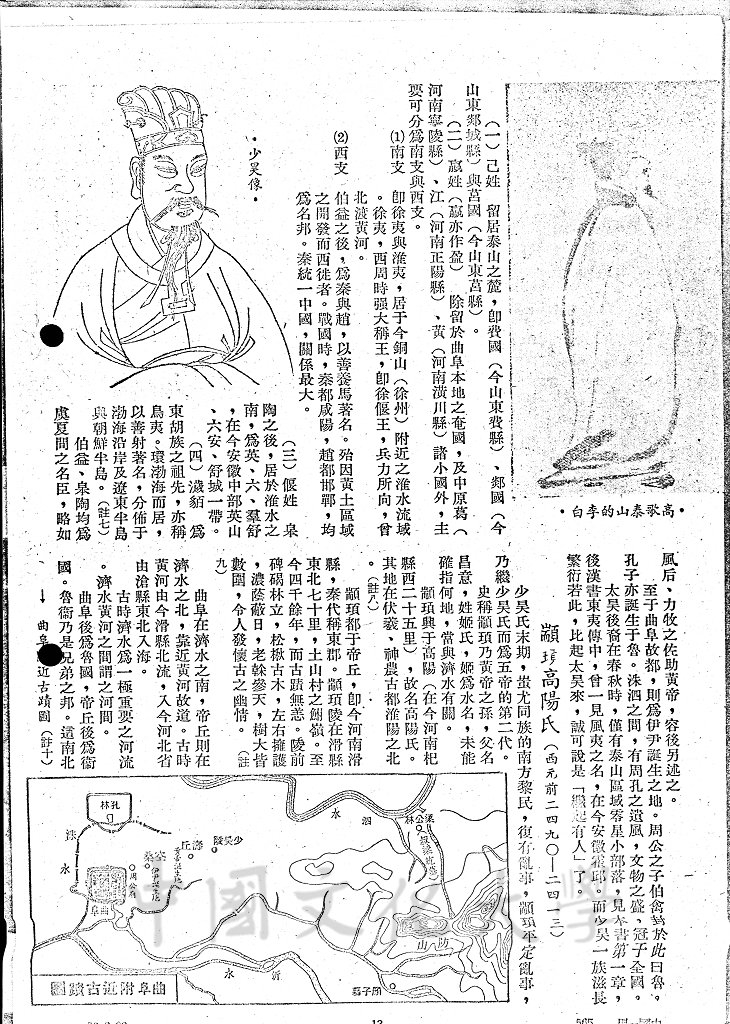 （一）己姓　留居泰山之麓，卽費國（今山東費縣）、郯國（今
山東郯城縣）與莒國（今山東莒縣）。
（二）嬴姓（嬴亦作盈）　除留於曲阜本地之奄國，及中原葛（
河南寧陵縣）、江（河南正陽縣）、黃（河南潢川縣）諸小國外，主
要可分爲南支與西支。
(1)南支　卽徐夷與淮夷，居于今銅山（徐州）附近之淮水流域
。徐夷，西周時强大稱王，卽徐偃王，兵力所向，曾
北渡黃河。
(2)西支　伯益之後，爲秦與趙，以善養馬著名。殆因黃土區域
之開發而西徙者。戰國時，秦都咸陽，趙都邯鄲，均
爲名邦。秦統一中國，關係最大。
•高歌泰山的李白•
•少昊像•
（三）偃姓　皋
陶之後，居於淮水之
南，爲英、六、羣舒
，在今安徽中部英山
、六安、舒城一帶。
（四）濊貊　爲
東胡族之祖先，亦稱
鳥夷。環渤海而居，
以善射著名，分佈于
渤海沿岸及遼東半島
與朝鮮半島。（註七）
伯益、皋陶均爲
虞夏間之名臣，略如
風后、力牧之佐助黃帝，容後另述之。
至于曲阜故都，則爲伊尹誕生之地。周公之子伯禽封於此曰魯。
孔子亦誕生于魯。洙泗之間，有周孔之遺風，文物之盛，冠于全國。
太昊後裔在春秋時，僅有泰山區域零星小部落，見本書第一章，
後漢書東夷傳中，曾一見風夷之名，在今安徽霍邱。而少昊一族滋長
繁衍若此，比起太昊來，誠可說是「繼起有人」了。
顓頊高陽氏（西元前二四九〇—二四一三）
少昊氏末期，蚩尤同族的南方黎民，復有亂事，顓頊平定亂事，
乃繼少昊氏而爲五帝的第二代。
史稱顓頊乃黃帝之孫，父名
昌意，姓姬氏，姬爲水名，未能
確指何地，當與濟水有關。
顓頊興于高陽（在今河南杞
縣西二十五里），故名高陽氏。
其地在伏羲、神農古都淮陽之北
。（註八）
顓頊都于帝丘，卽今河南滑
縣，秦代稱東郡。顓頊陵在滑縣
東北七十里，土山村之鮒嶺。至
今四千餘年，而古蹟無恙。陵前
碑碣林立，松楸古木，左右擁護
，濃蔭蔽日，老榦參天，樹大皆
數圍，令人發懷古之幽情。（註
九）
曲阜在濟水之南，帝丘則在
濟水之北，靠近黃河故道。古時
黃河由今滑縣北流，入今河北省
由滄縣東北入海。
古時濟水爲一極重要之河流
。濟水黃河之間謂之河間。
曲阜後爲魯國，帝丘後爲衞
國。魯衞乃是兄弟之邦。這南北
→曲阜附近古蹟圖（註十）
孔林
洙
水
泗
水
梁公林
少昊陵
壽丘
窮桑
周公廟
曲阜
防山
沂
水
顏子墓
曲阜附近古蹟圖
中國文化大學
12
565